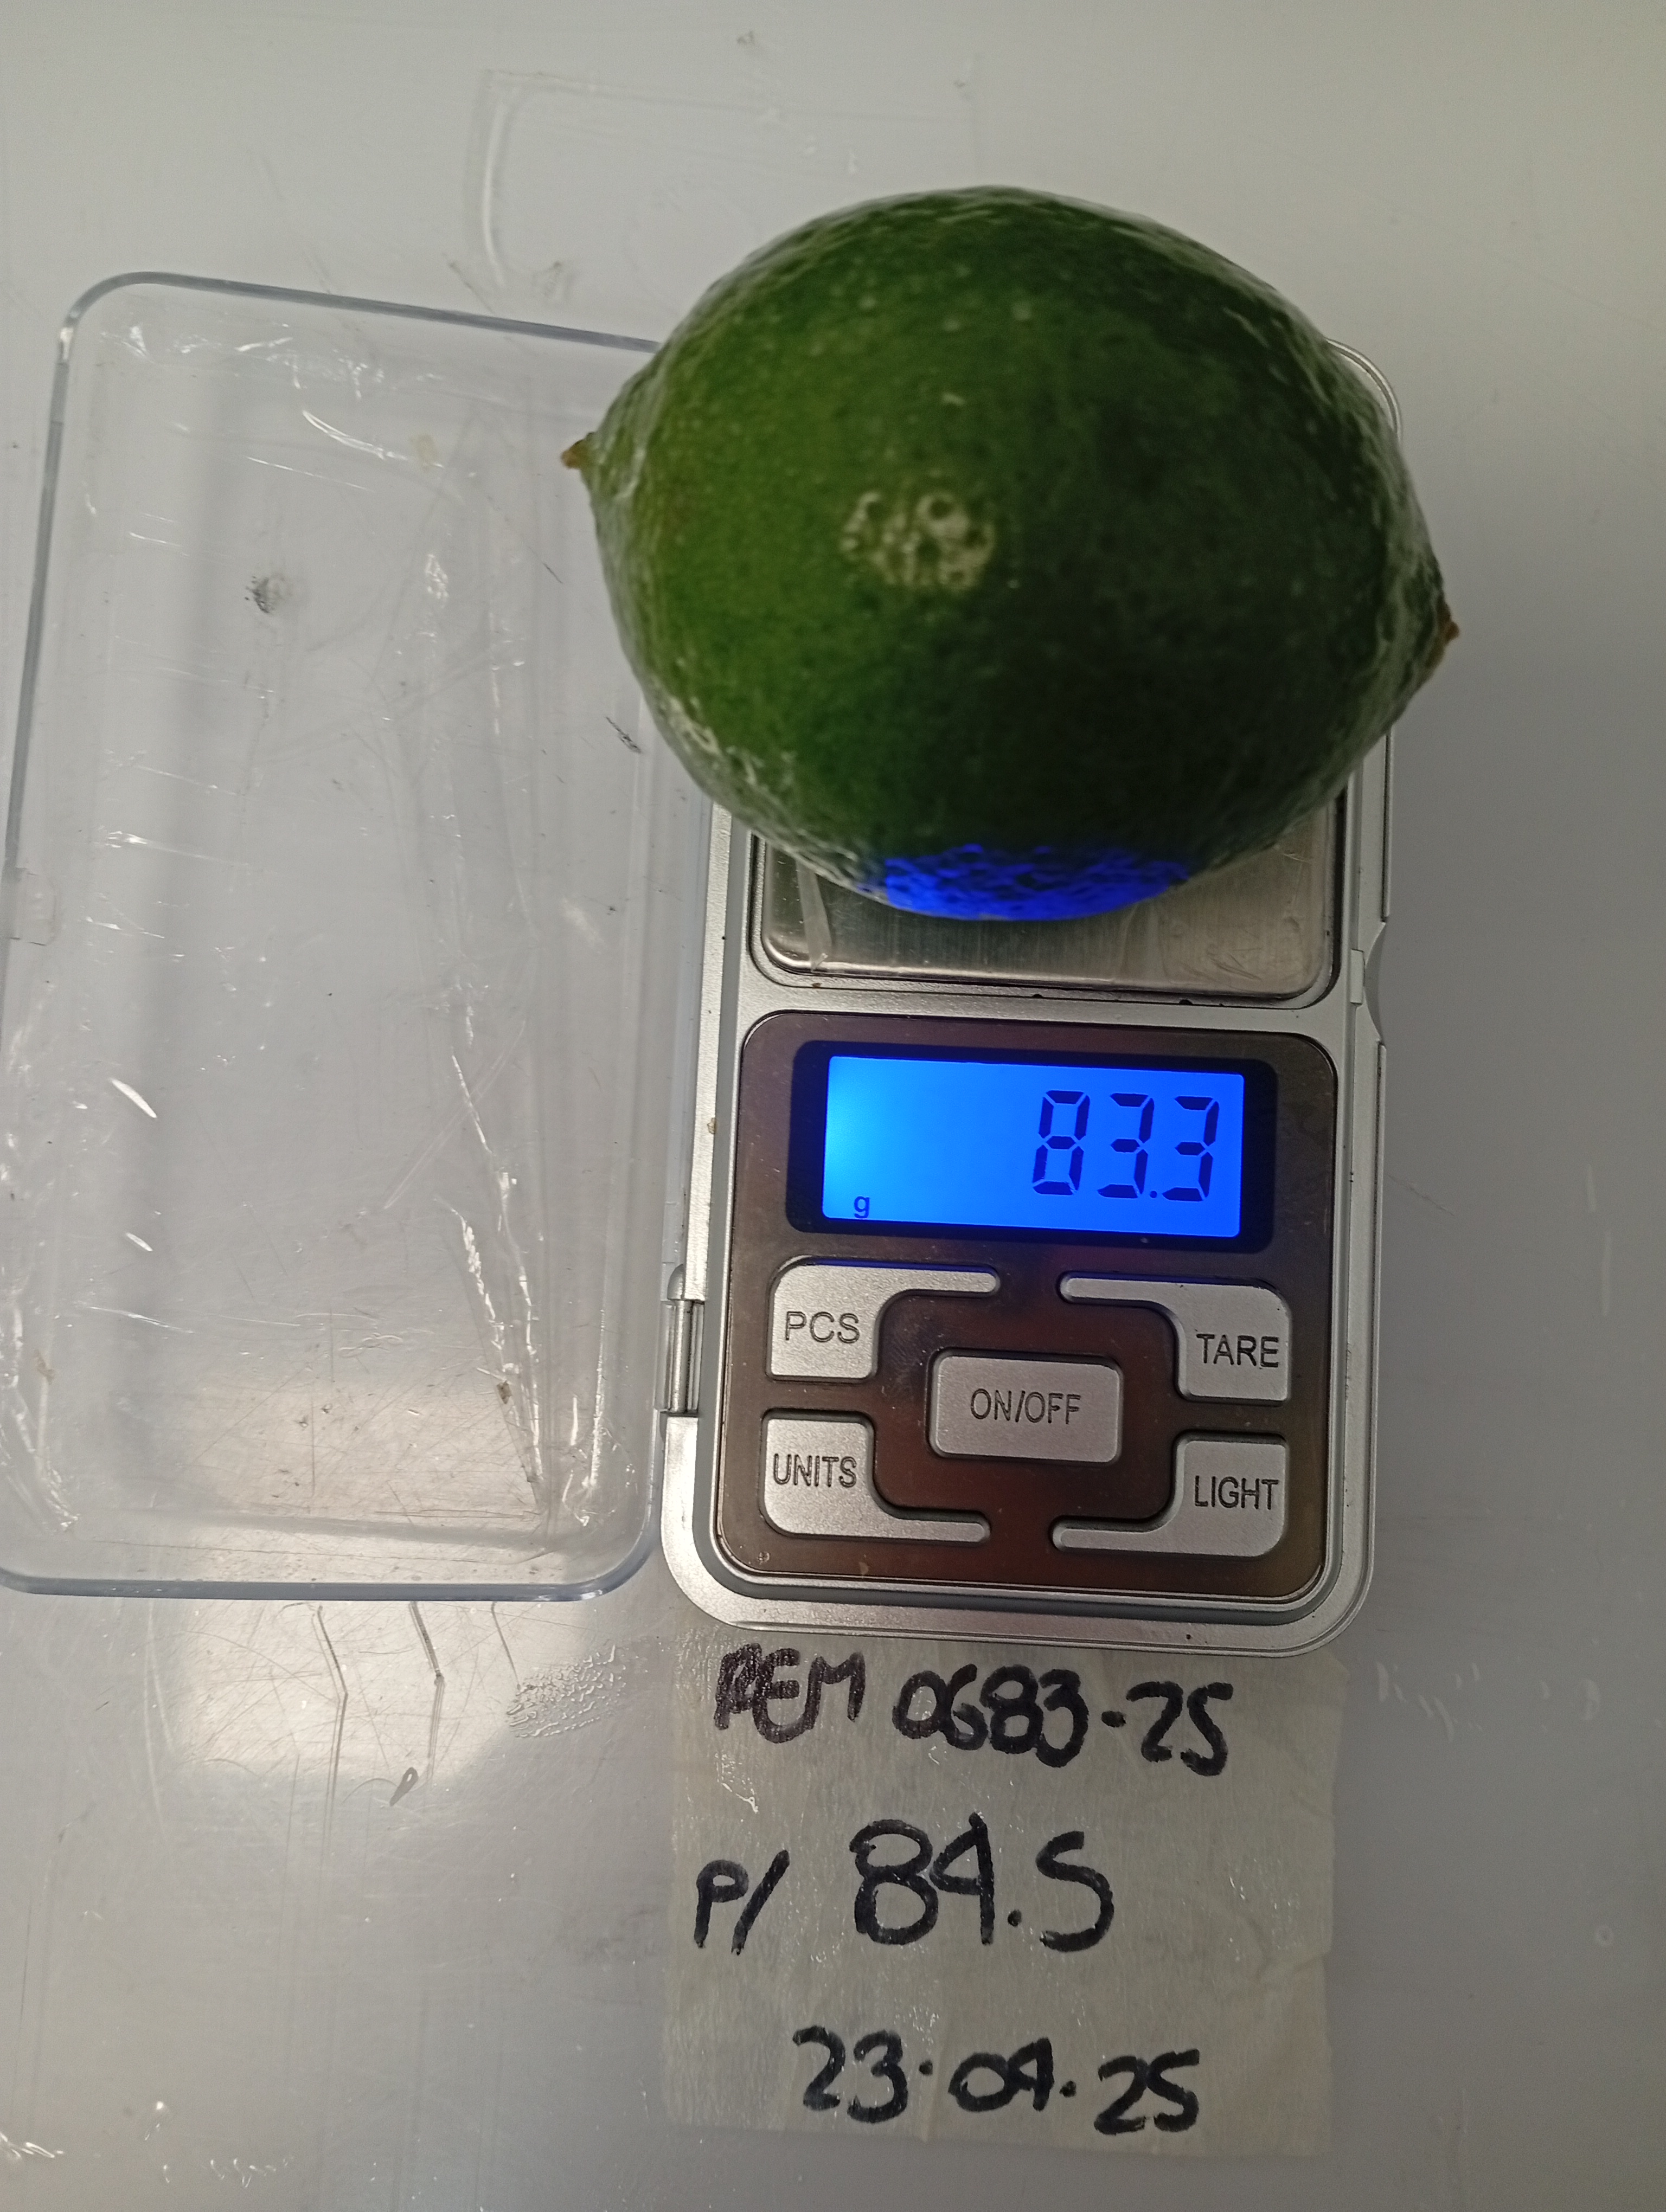 83.3
g
PCS
TARE
ON/OFF
UNITS
LIGHT
REM 0683-25
P/ 84.5
23.04.25